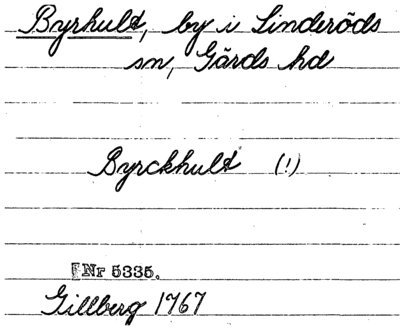 Byrhult, by i Linderöds
sn, Gärds hd
Byrckhult (!)
Nr 5335.
Gillberg 1767